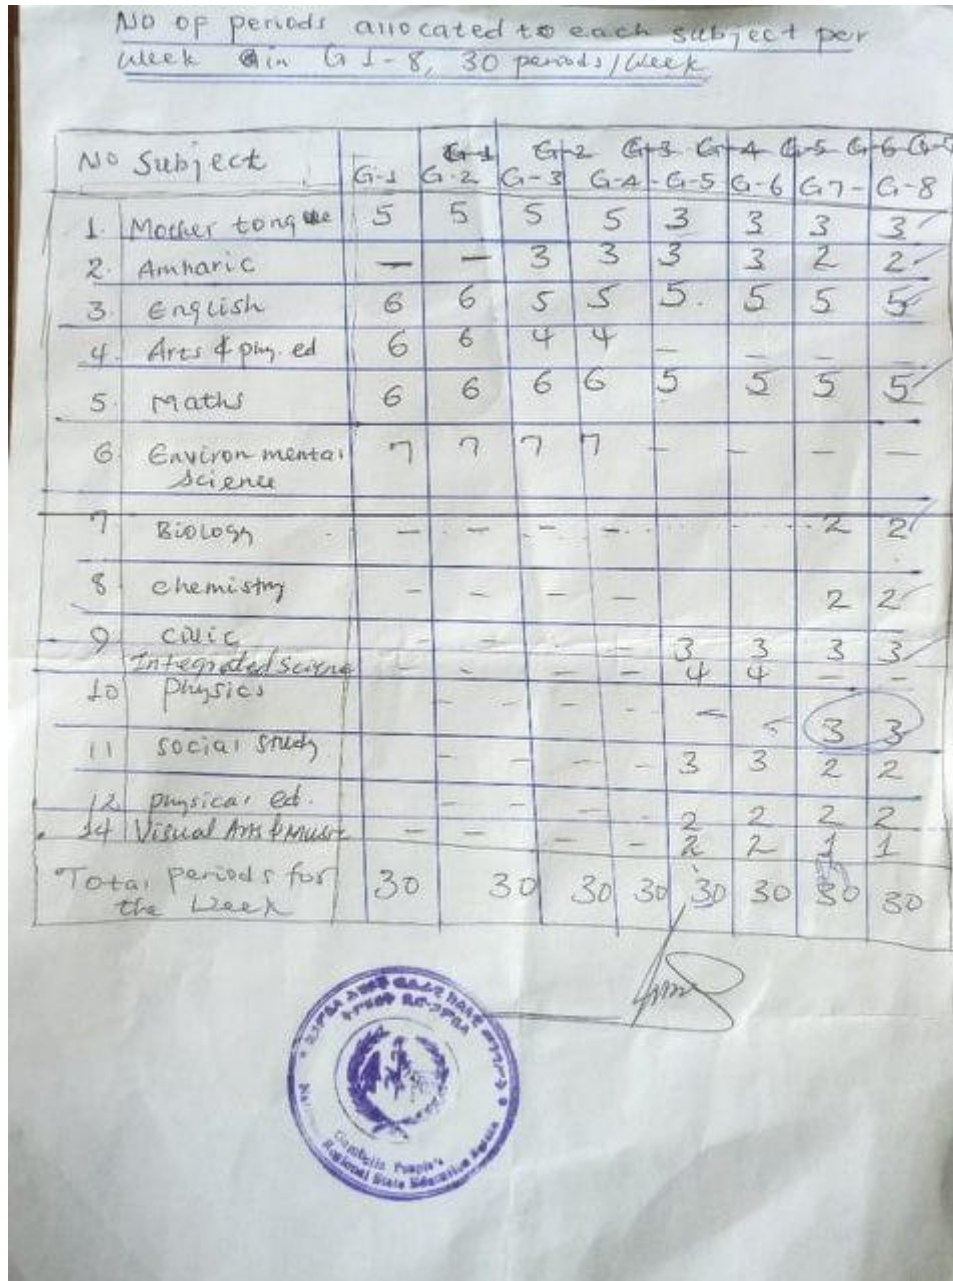 No of periods allocated to each subject per
week in G 1-8, 30 periods/week
G-1 G-2 G-3 G-4 G-5 G-6
No Subject G-1 G-2 G-3 G-4 - G-5 G-6 G7 - G-8
1. Mother tongue 5 5 5 5 3 3 3 3
2. Amharic — — 3 3 3 3 2 2
3. English 6 6 5 5 5. 5 5 5
4. Arts & phy. ed 6 6 4 4 — — — —
5. Maths 6 6 6 6 5 5 5 5
6 Environmental 7 7 7 7 — — — —
Science
7 Biology — — — — 2 2
8 chemistry — — — — 2 2
9 civic — — — — 3 3 3 3
Integrated Science — — — — 4 4 — —
10 physics — — — — — — 3 3
11 social study — — — — 3 3 2 2
12 physical ed. — — — — 2 2 2 2
14 Visual Arts & Music — — — — 2 2 1 1
Total periods for 30 30 30 30 30 30 30 30
the week
Gambella People's
Regional State Education